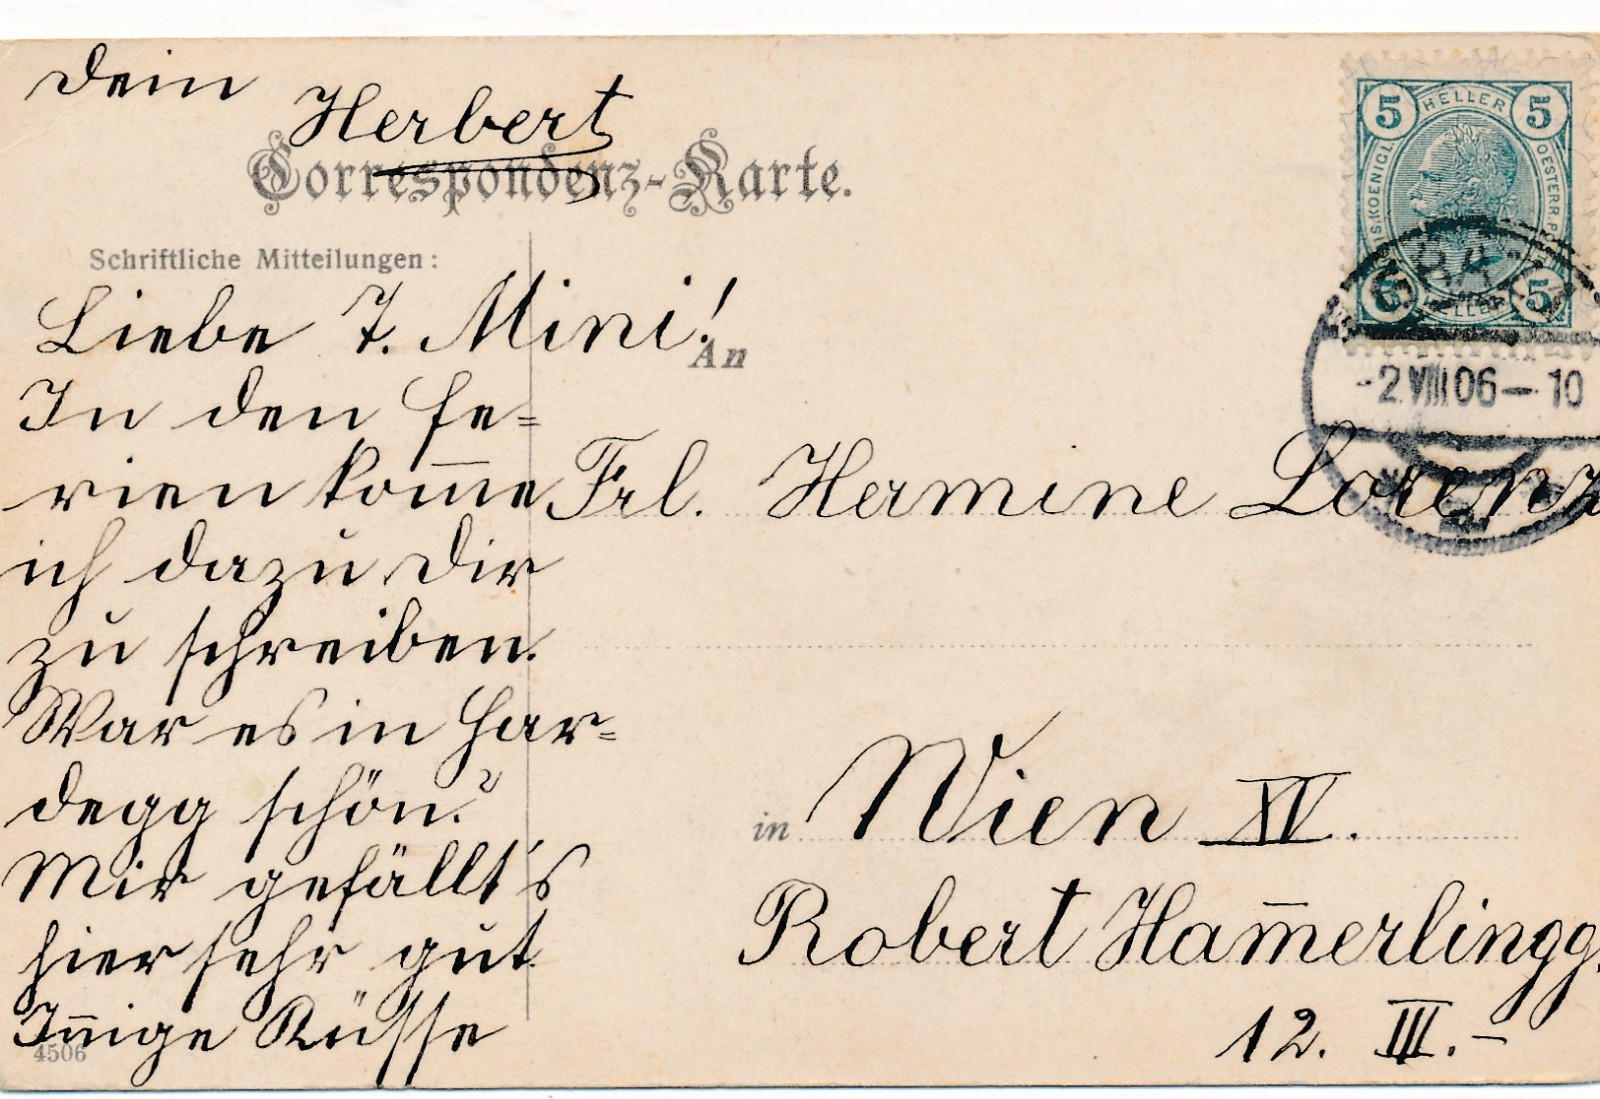 Dein
Herbert
Correspondenz-Karte.
Schriftliche Mitteilungen:
Liebe T. Mini!
In den Fe=
rien kom̅e
ich dazu Dir
zu schreiben.
War es in Har=
degg schön?
Mir gefällt's
hier sehr gut.
In̅ige Küsse
4506
5 HELLER 5
OESTERR.P
5
HELLER
-2.VIII.06-10
An
Frl. Hermine Lorenz
in Wien XV.
Robert Ham̅erlingg.
12. III.-